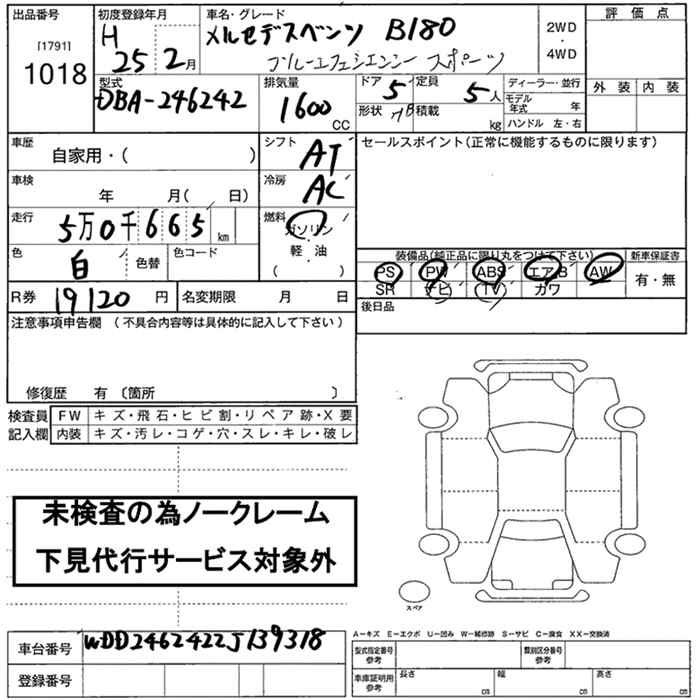 出品番号
[1791]
1018
初度登録年月
H 25 2月
車名・グレード
メルセデスベンツ B180
ブルーエフェシエンシー スポーツ
2WD
・
4WD
評価点
外装 内装
型式
DBA-246242
排気量
1600
CC
ドア 5
定員 5人
形状 HB
積載 kg
ディーラー・並行
モデル年式 年
ハンドル 左・右
車歴
自家用・( )
シフト
AT
セールスポイント(正常に機能するものに限ります)
車検
年 月( 日)
冷房
AC
走行
5万0千665km
燃料
ガソリン
軽・油
( )
色
白
色替
色コード
装備品(純正品に限り丸をつけて下さい)
新車保証書
PS PW ABS エアB AW
有・無
SR ナビ TV カワ
R券 19120円
名変期限 月 日
後日品
注意事項申告欄(不具合内容等は具体的に記入して下さい)
修復歴 有〔箇所 〕
検査員
記入欄
FW キズ・飛石・ヒビ割・リペア跡・X要
内装 キズ・汚レ・コゲ・穴・スレ・キレ・破レ
未検査の為ノークレーム
下見代行サービス対象外
スペア
A-キズ E-エクボ U-凹み W-補修跡 S-サビ C-腐食 XX-交換済
車台番号 WDD2462422J139318
登録番号
型式指定番号
参考
類別区分番号
参考
車庫証明用
参考
長さ cm
幅 cm
高さ cm